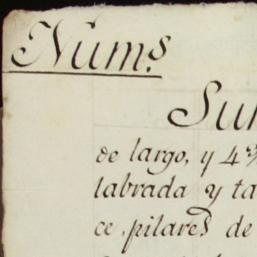 Num.s
Sun
de largo, y 4
labrada y ta
ce pilares de